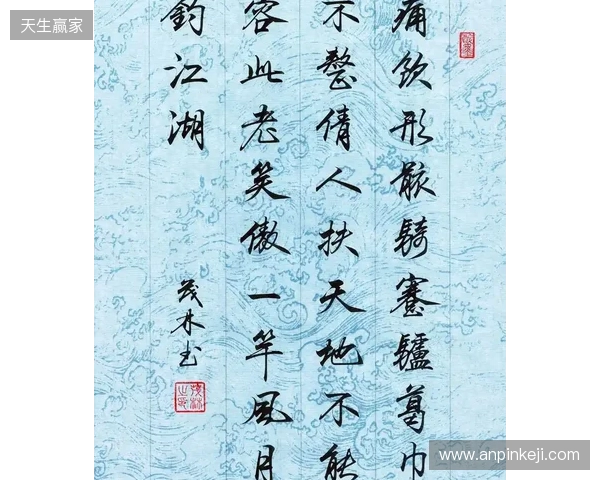 天生赢家
痛飲形骸騎蹇驢葛巾
不整倩人扶天地不能
容此老笑傲一竿風月
釣江湖
茂林书
www.anpinkeji.com